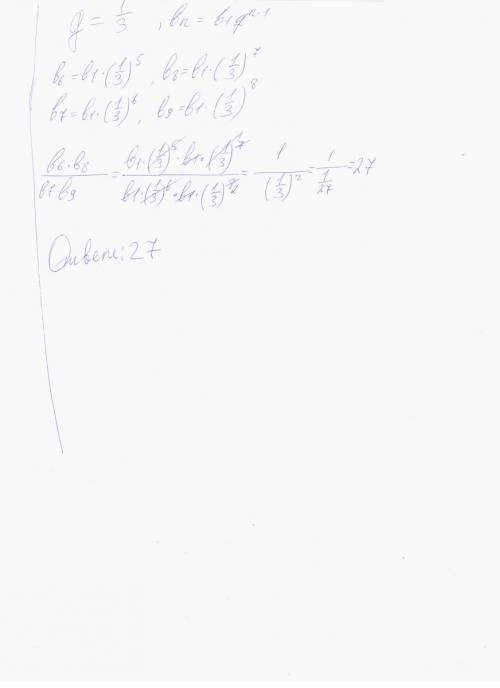 q = 1/3 , bn = b1q^n-1
b6 = b1·(1/3)^5 , b8 = b1·(1/3)^7
b7 = b1·(1/3)^6 , b9 = b1·(1/3)^8
b6·b8 / b7 b9 = b1·(1/3)^5·b1·(1/3)^7 / b1·(1/3)^6·b1·(1/3)^8 = 1 / (1/3)^2 = 1 / 1/27 = 27
Ответ: 27